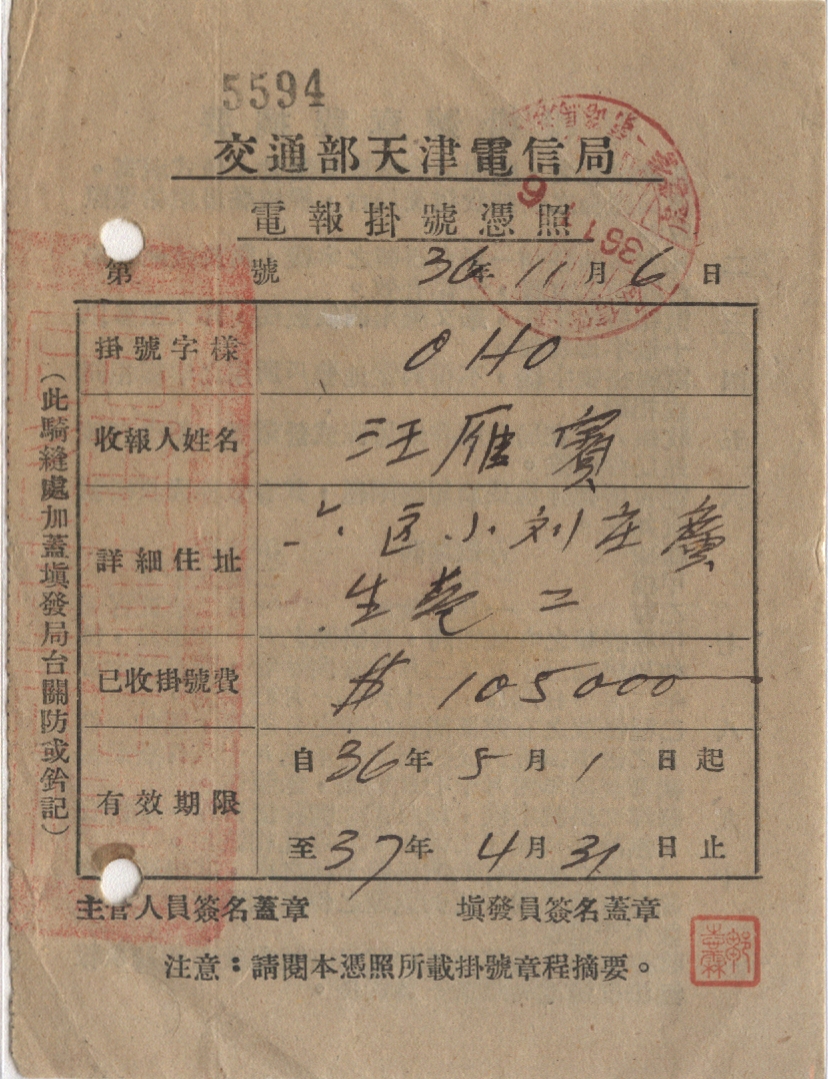 5594
交通部天津電信局
電報掛號憑照
第 號 36年 11月 6日
掛號字樣 0140
收報人姓名 汪雁賓
詳細住址 六区小刘庄廣
生菴二
已收掛號費 $ 105000
有效期限 自36年 5月 1日起
至37年 4月 31日止
(此騎縫處加蓋塡發局台關防或鈐記)
主管人員簽名蓋章 塡發員簽名蓋章
注意：請閱本憑照所載掛號章程摘要。